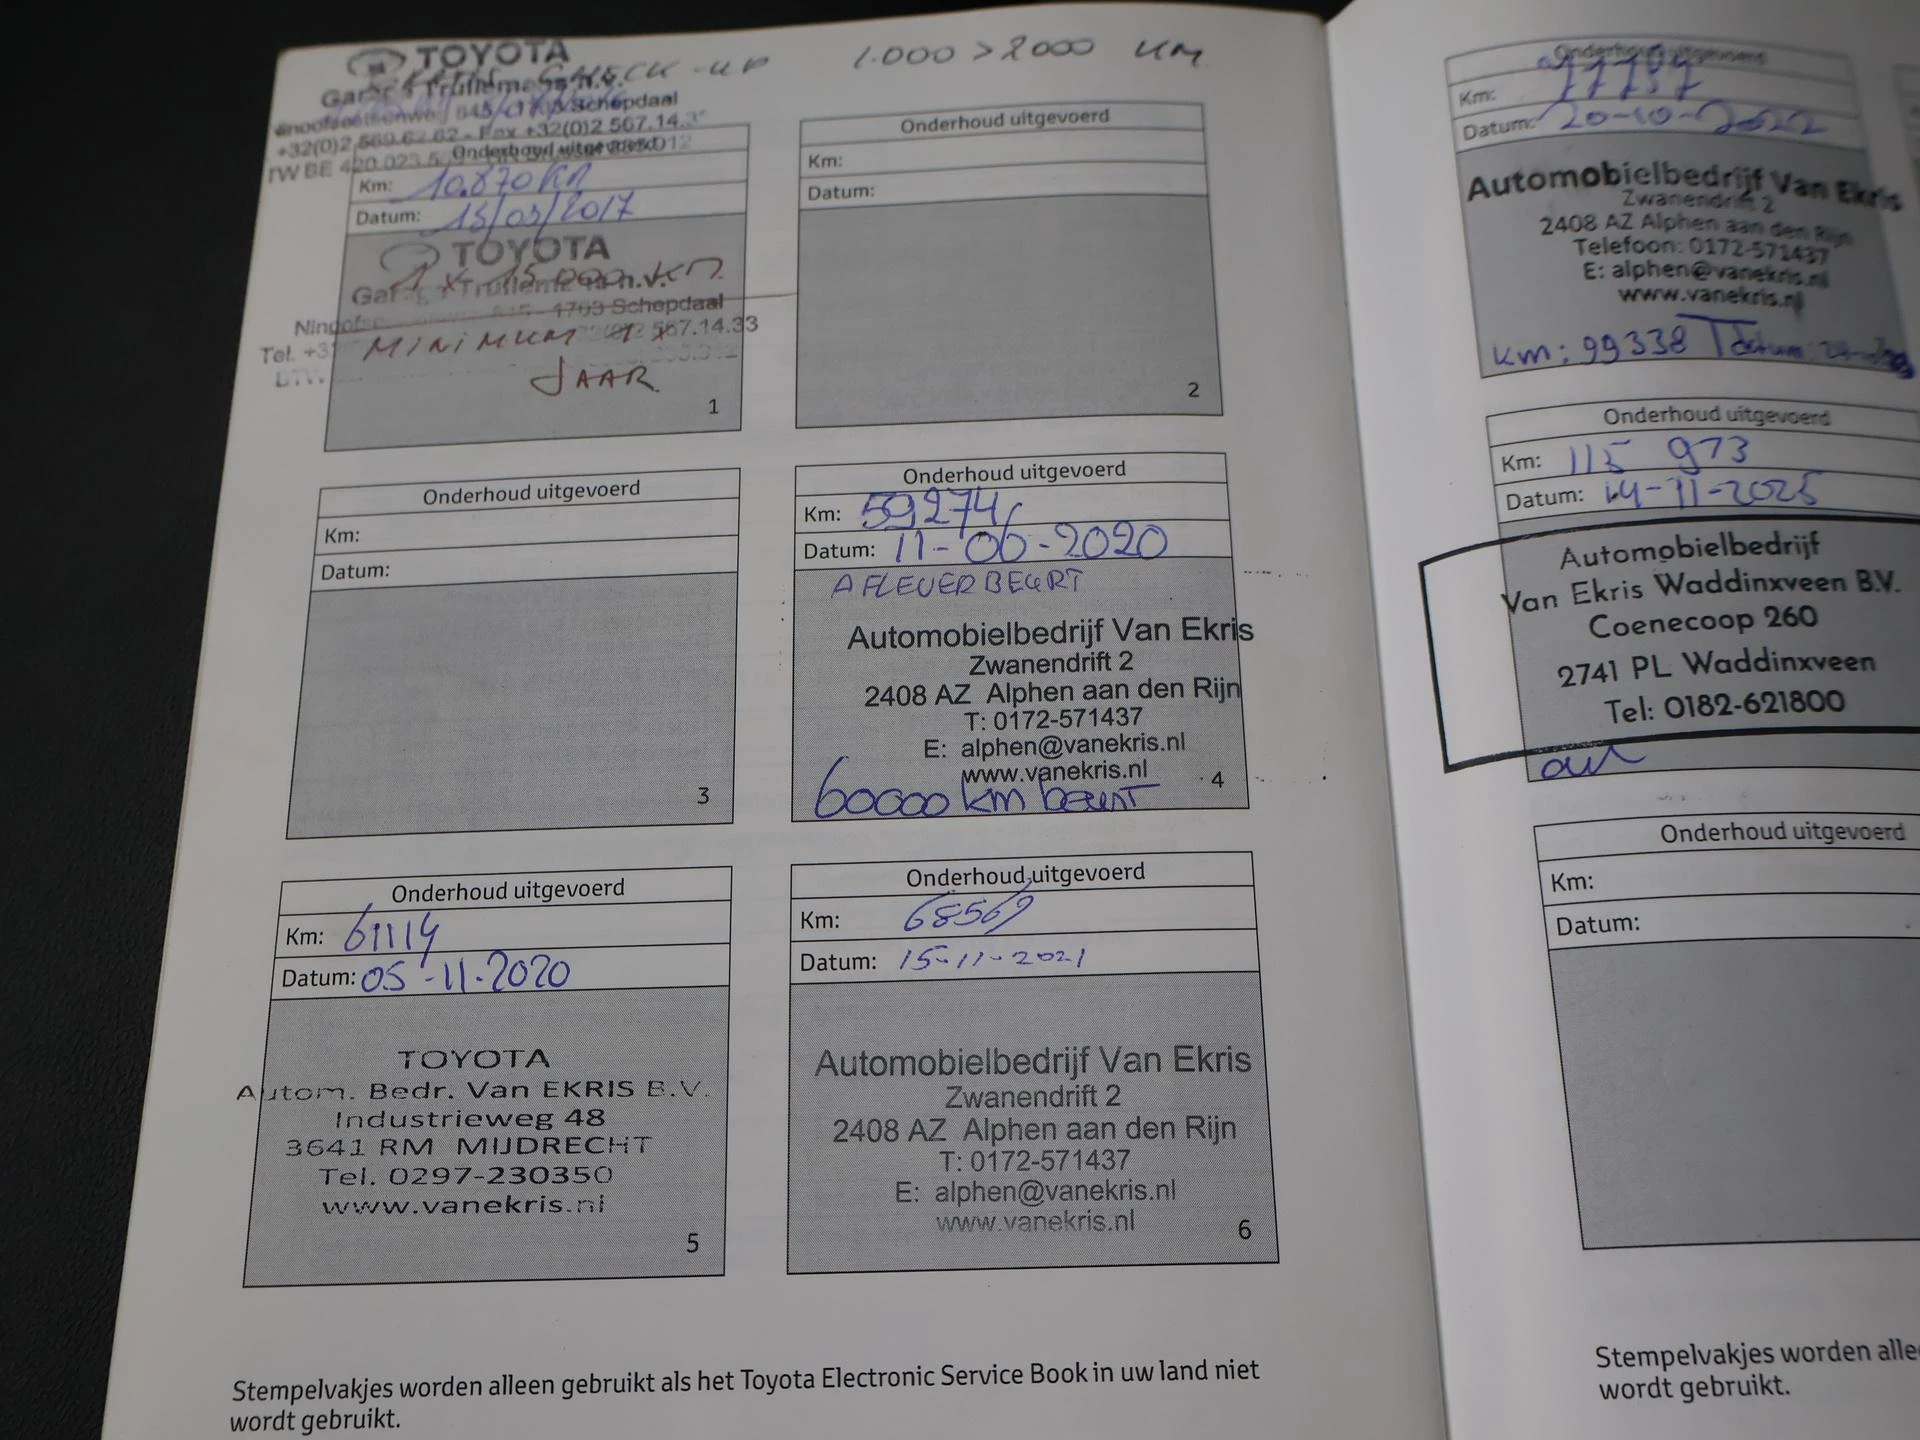 TOYOTA
CHECK-UP 1.000 > 2000 KM
Schepdaal
+32(0)2 569.62.62 - Fax +32(0)2 567.14.3
Onderhoud uitgevoerd
Km: 10.870 KM
Datum: 15/03/2017
TOYOTA
1 x 15.000 KM
1703 Schepdaal
567.14.33
Tel. +3
MINIMUM 1 x
JAAR
1
Onderhoud uitgevoerd
Km:
Datum:
2
Onderhoud uitgevoerd
Km:
Datum:
3
Onderhoud uitgevoerd
Km: 59274
Datum: 11-06-2020
AFLEVERBEURT
Automobielbedrijf Van Ekris
Zwanendrift 2
2408 AZ Alphen aan den Rijn
T: 0172-571437
E: alphen@vanekris.nl
www.vanekris.nl
60000 km beurt
4
Onderhoud uitgevoerd
Km: 61114
Datum: 05-11-2020
TOYOTA
Autom. Bedr. Van EKRIS B.V.
Industrieweg 48
3641 RM MIJDRECHT
Tel. 0297-230350
www.vanekris.nl
5
Onderhoud uitgevoerd
Km: 68569
Datum: 15-11-2021
Automobielbedrijf Van Ekris
Zwanendrift 2
2408 AZ Alphen aan den Rijn
T: 0172-571437
E: alphen@vanekris.nl
www.vanekris.nl
6
Stempelvakjes worden alleen gebruikt als het Toyota Electronic Service Book in uw land niet
wordt gebruikt.
Onderhoud uitgevoerd
Km: 77797
Datum: 20-10-2022
Automobielbedrijf Van Ekris
Zwanendrift 2
2408 AZ Alphen aan den Rijn
Telefoon: 0172-571437
E: alphen@vanekris.nl
www.vanekris.nl
km: 99338 Datum:
Onderhoud uitgevoerd
Km: 115 973
Datum: 14-11-2025
Automobielbedrijf
Van Ekris Waddinxveen B.V.
Coenecoop 260
2741 PL Waddinxveen
Tel: 0182-621800
Onderhoud uitgevoerd
Km:
Datum:
Stempelvakjes worden alle
wordt gebruikt.